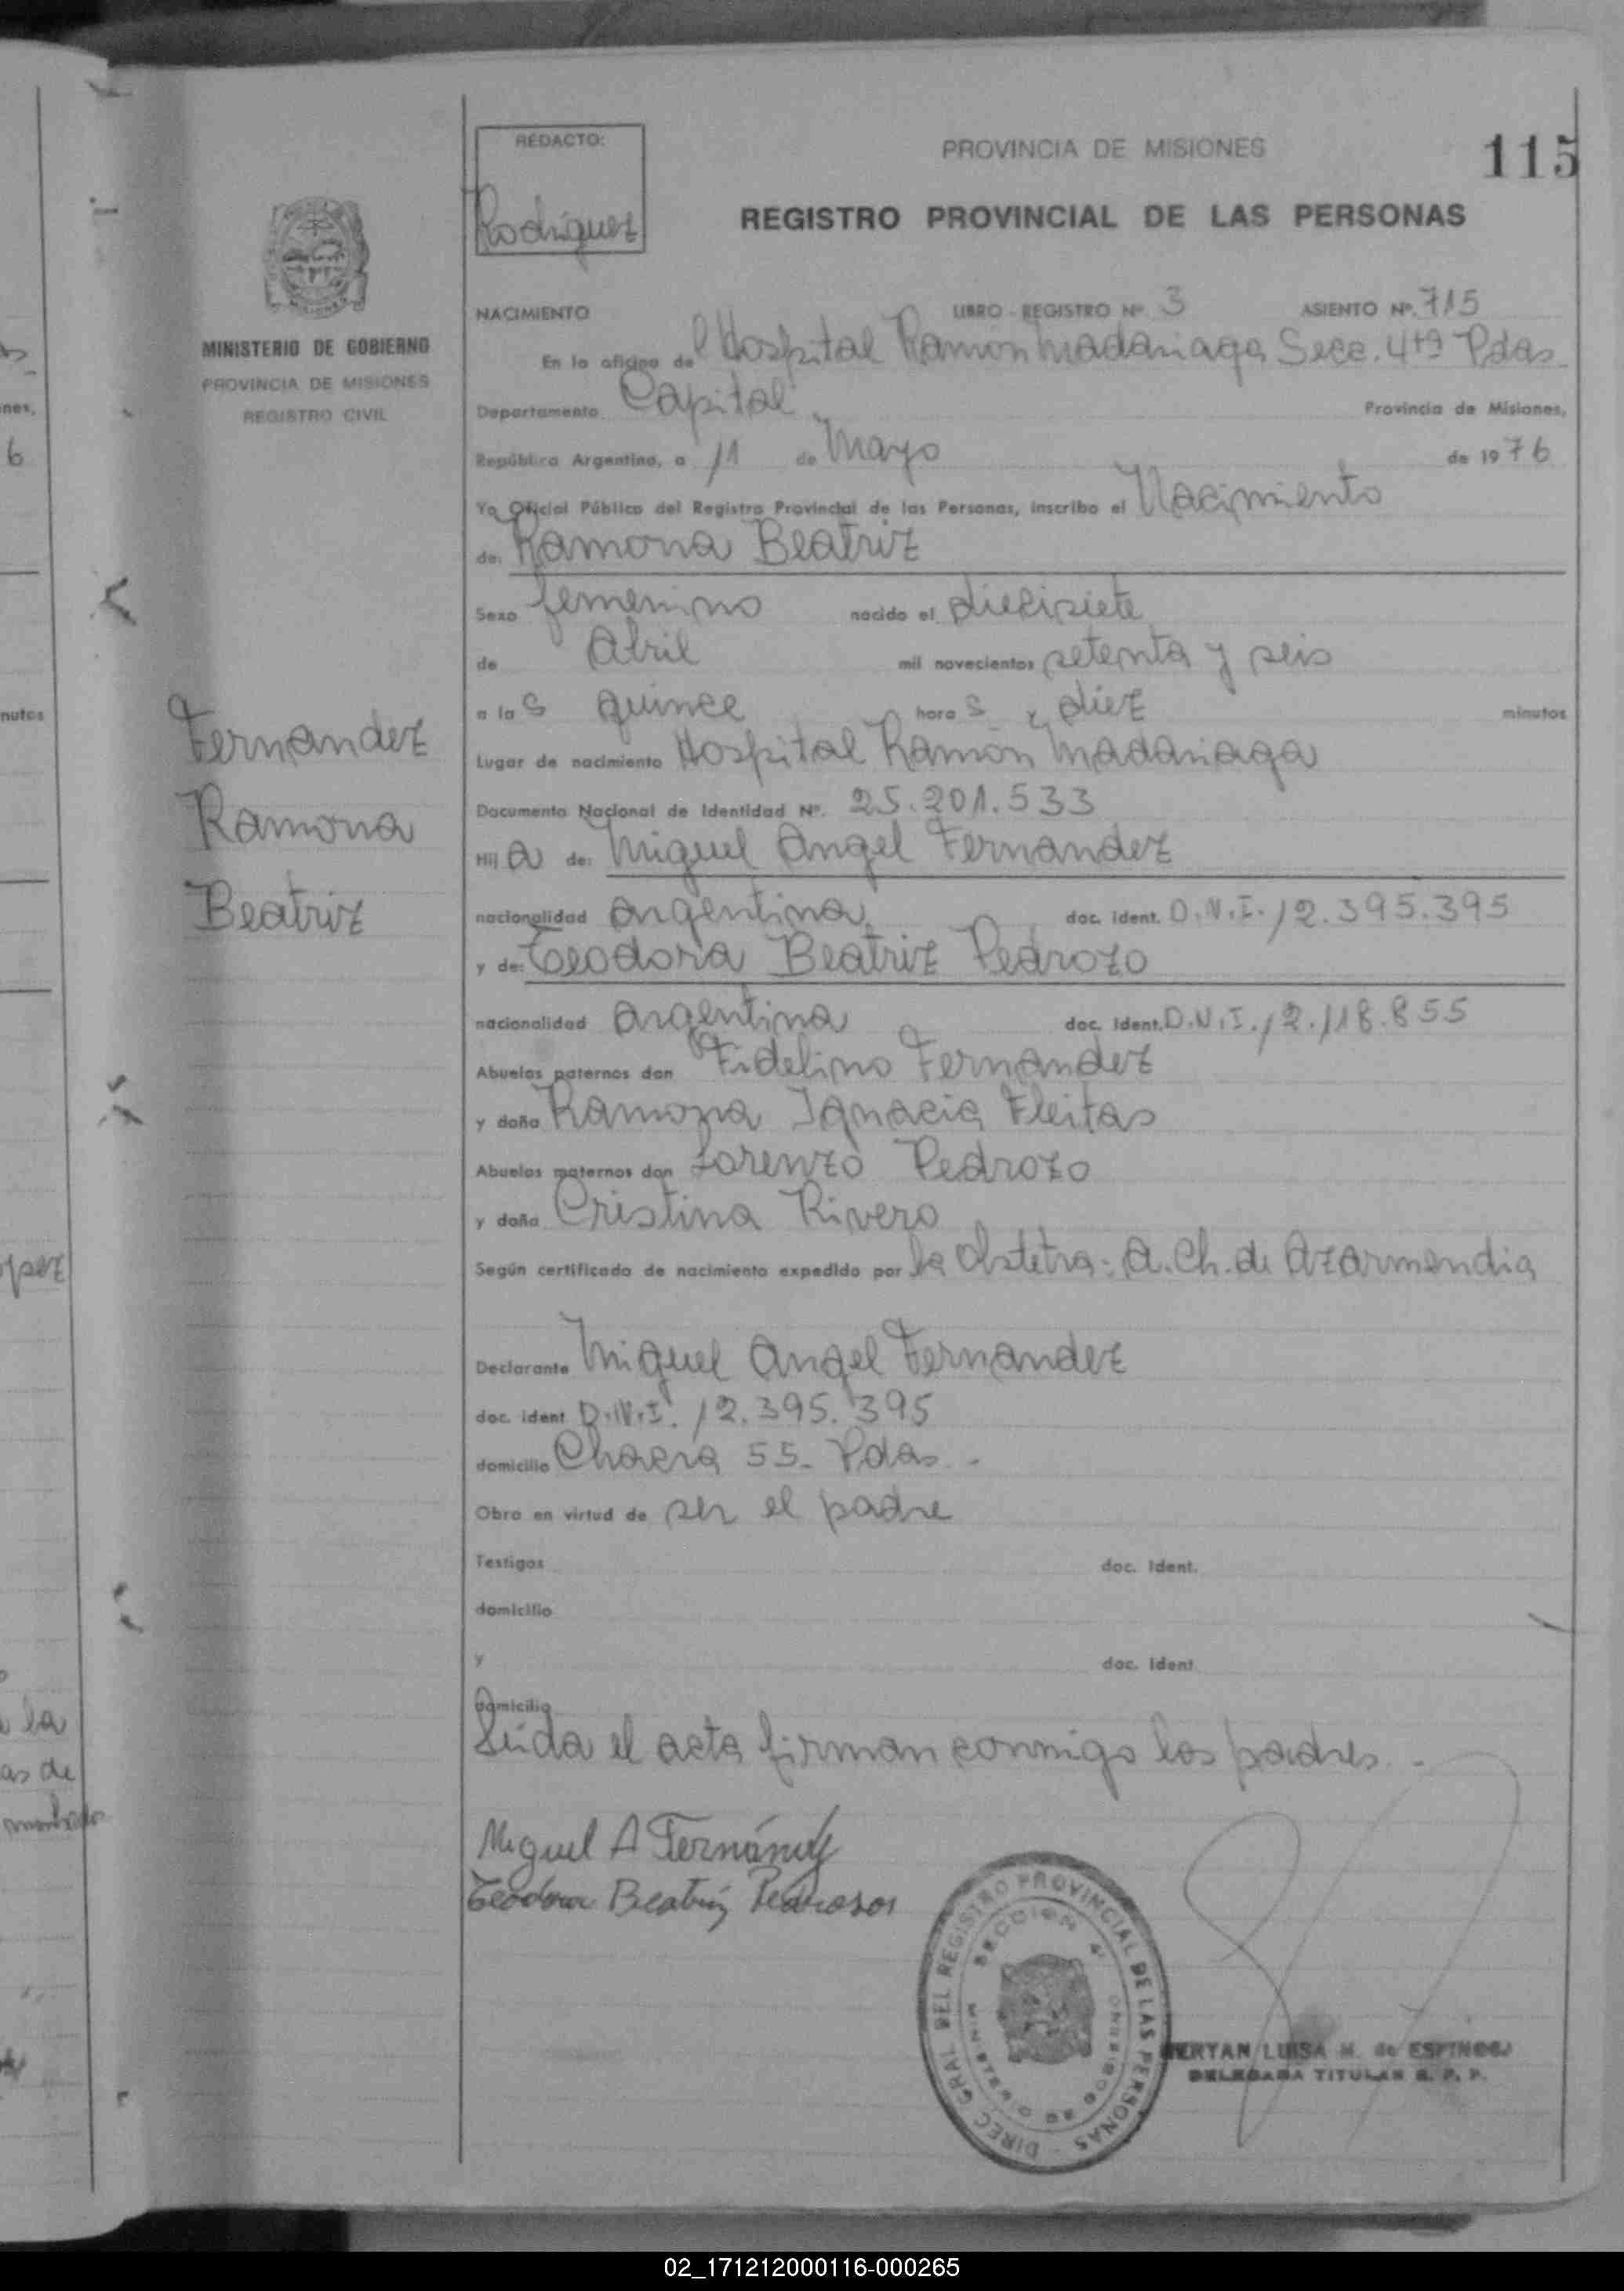 REDACTO:
Rodriguez
PROVINCIA DE MISIONES
115
REGISTRO PROVINCIAL DE LAS PERSONAS
MINISTERIO DE GOBIERNO
PROVINCIA DE MISIONES
REGISTRO CIVIL
NACIMIENTO LIBRO - REGISTRO Nº 3 ASIENTO Nº. 715
En la oficina del Hospital Ramón Madariaga Secc. 4ta Pdas
Departamento Capital Provincia de Misiones,
República Argentina, a 11 de Mayo de 1976
Yo Oficial Público del Registro Provincial de las Personas, inscribo el Nacimiento
de: Ramona Beatriz
Sexo femenino nacido el diecisiete
de Abril mil novecientos setenta y seis
a las quince horas y diez minutos
Lugar de nacimiento Hospital Ramón Madariaga
Documento Nacional de Identidad Nº. 25.201.533
Hija de: Miguel Angel Fernandez
nacionalidad argentina doc. ident. D.N.I. 12.395.395
y de: Teodora Beatriz Pedrozo
nacionalidad argentina doc. ident. D.N.I. 12.118.855
Abuelos paternos don Fidelino Fernandez
y doña Ramona Ignacia Fleitas
Abuelos maternos don Lorenzo Pedrozo
y doña Cristina Rivero
Según certificado de nacimiento expedido por la Obstetra: A. Ch. de Azarmendia
Declarante Miguel Angel Fernandez
doc. ident D.N.I. 12.395.395
domicilio Chacra 55- Pdas.
Obra en virtud de ser el padre
Testigos doc. ident.
domicilio
y doc. ident
domicilio
Leida el acta firman conmigo los padres.
Fernandez
Ramona
Beatriz
Miguel A Fernández
Teodora Beatriz Pedroso
DIREC. GRAL. DEL REGISTRO PROVINCIAL DE LAS PERSONAS
SECCION 4ª
MINISTERIO DE GOBIERNO
LUISA M. de ESPINOSA
DELEGADA TITULAR R. P. P.
nes,
6
nutos
opez
a la
as de
02_171212000116-000265